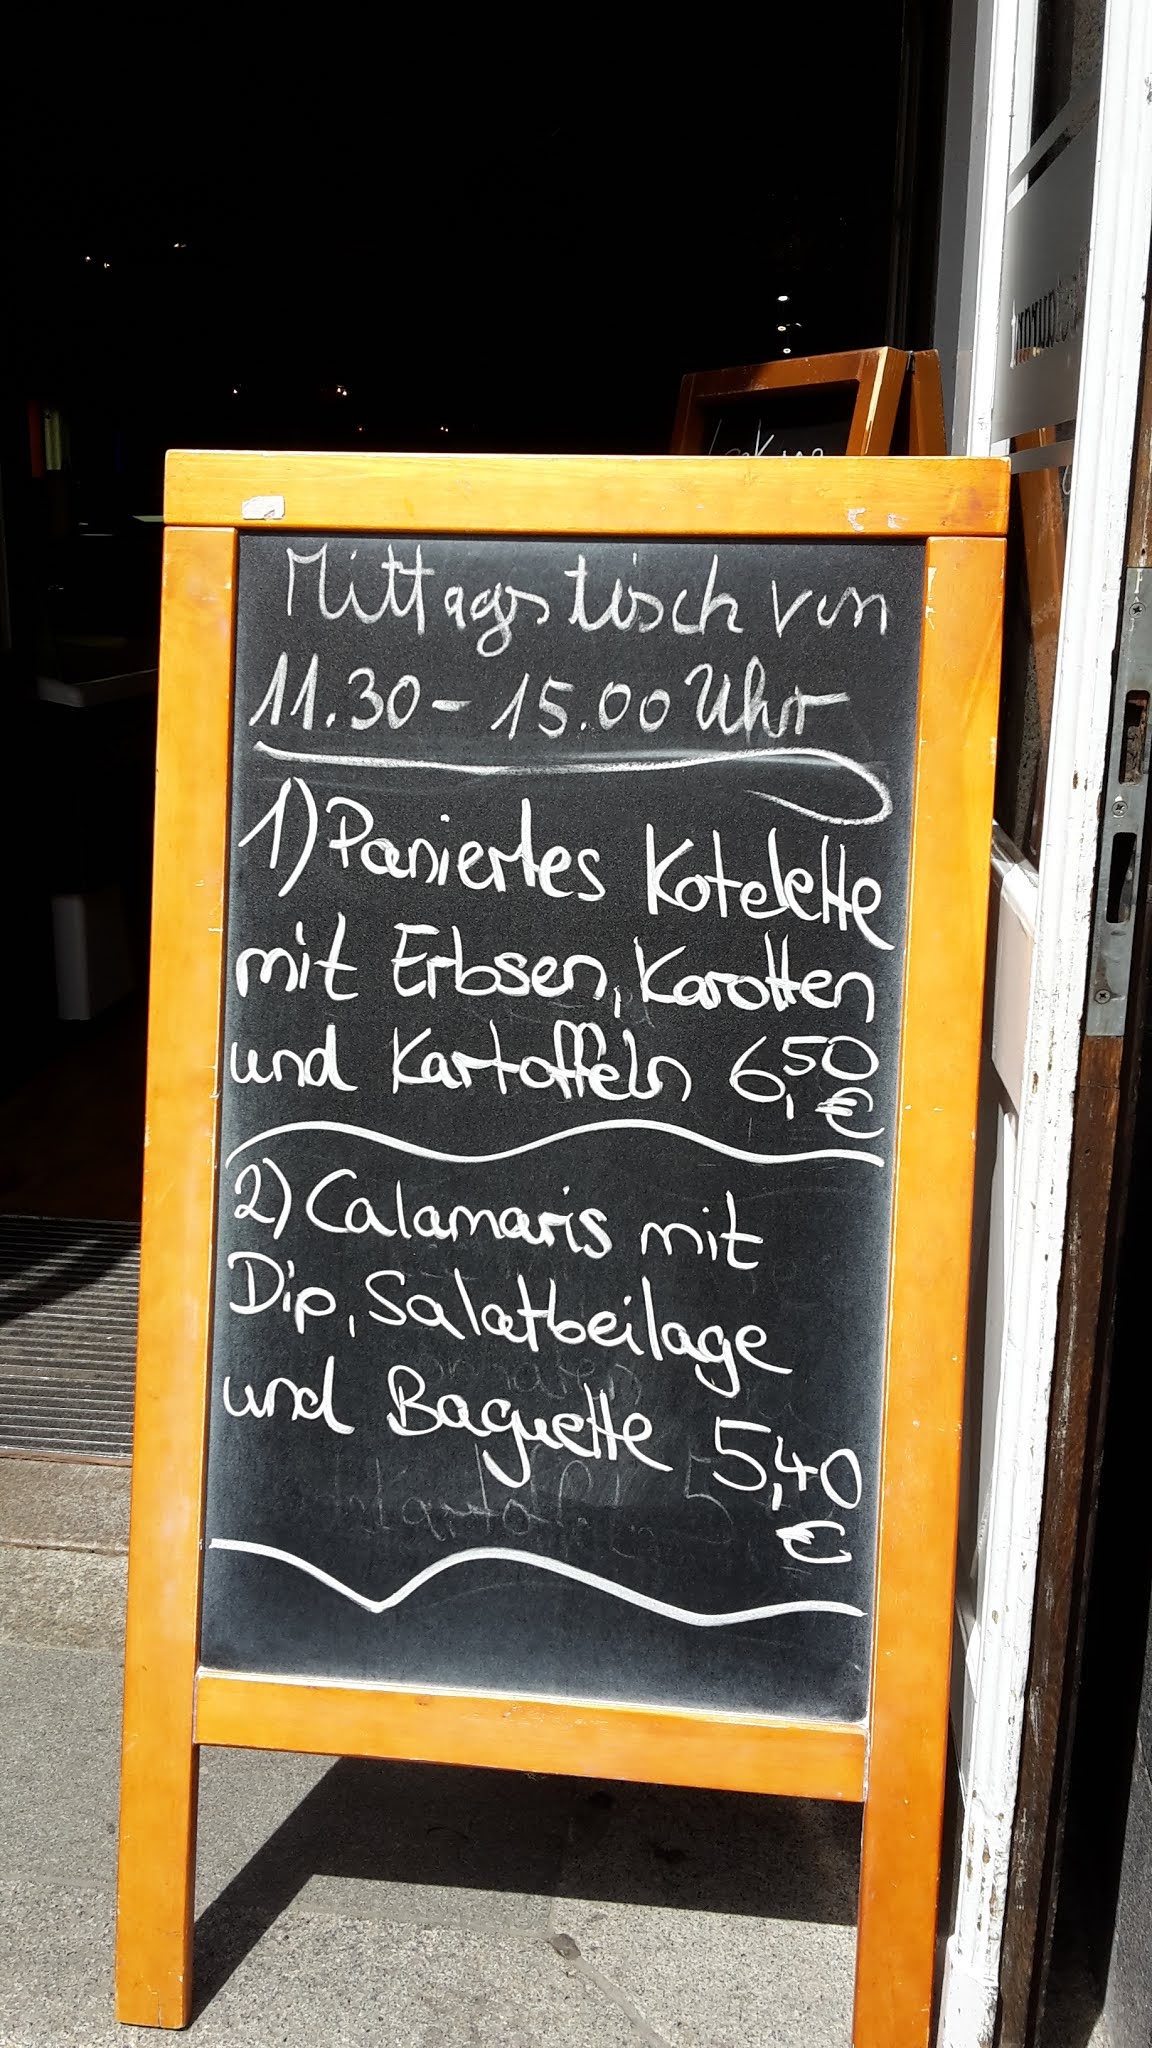 Mittagstisch von
11.30 - 15.00 Uhr
1) Paniertes Kotelette
mit Erbsen, Karotten
und Kartoffeln 6,50
€
2) Calamaris mit
Dip, Salatbeilage
und Baguette 5,40
€